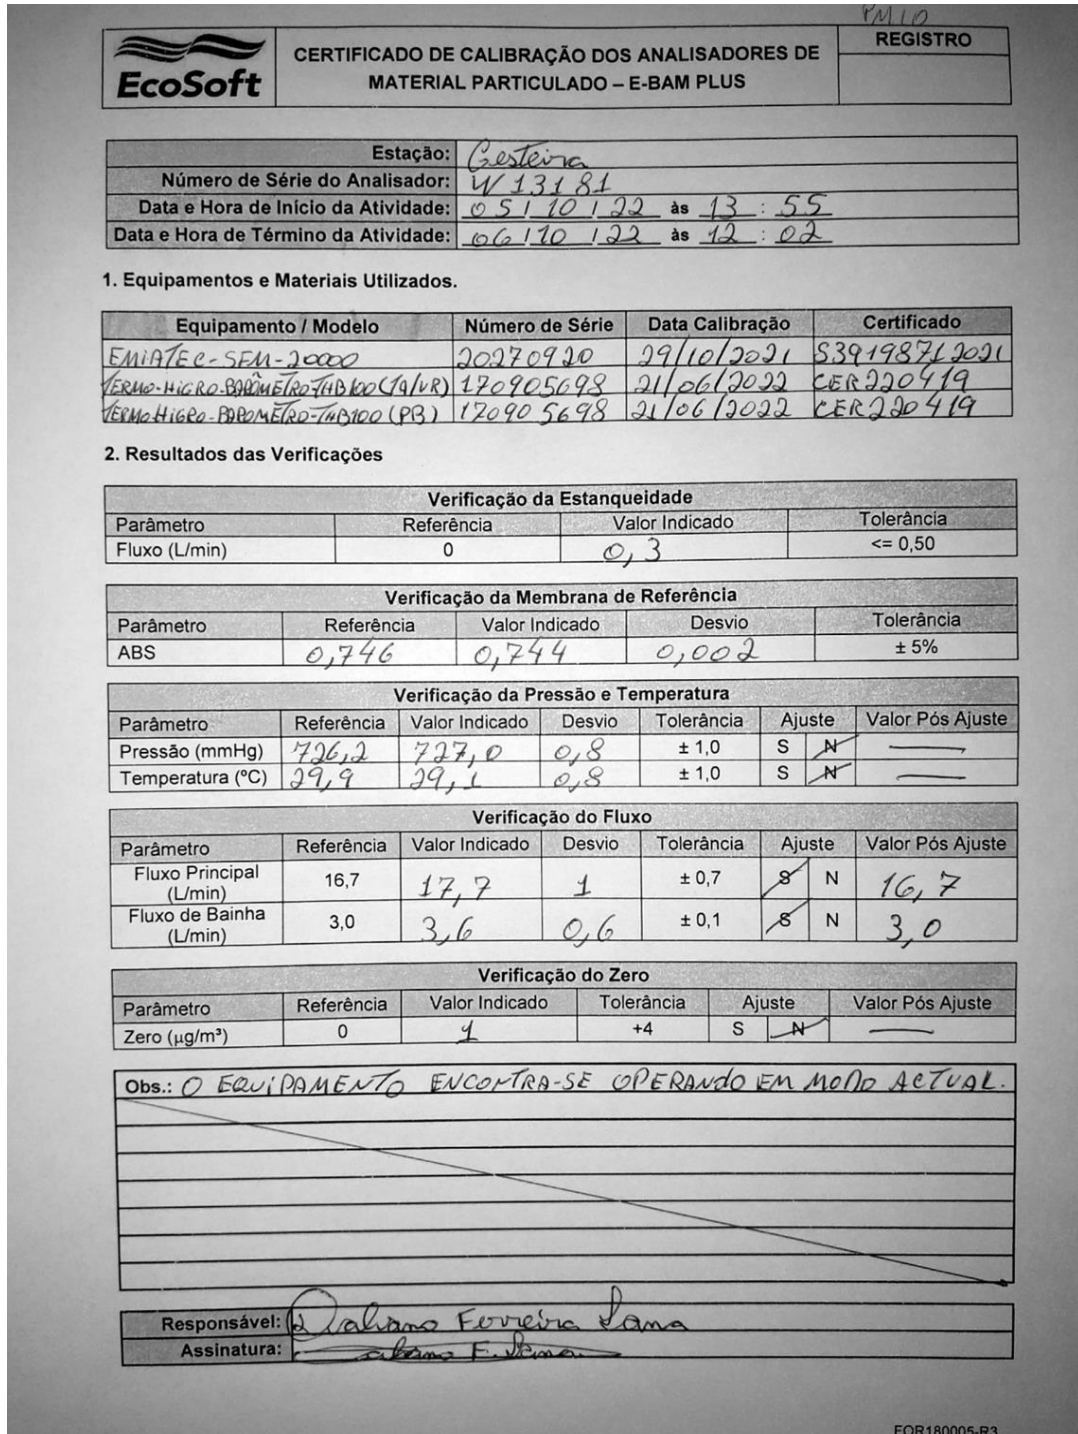 PM10
EcoSoft
CERTIFICADO DE CALIBRAÇÃO DOS ANALISADORES DE
MATERIAL PARTICULADO – E-BAM PLUS
REGISTRO
Estação: Gesteira
Número de Série do Analisador: W13181
Data e Hora de Início da Atividade: 05/10/22 às 13:55
Data e Hora de Término da Atividade: 06/10/22 às 12:02
1. Equipamentos e Materiais Utilizados.
Equipamento / Modelo Número de Série Data Calibração Certificado
EMIATEC-SFM-20000 20270920 29/10/2021 S3919871 2021
TERMO-HIGRO-BARÔMETRO-THB100 (TA/UR) 170905698 21/06/2022 CER220419
TERMO HIGRO-BAROMETRO-THB100 (PB) 170905698 21/06/2022 CER220419
2. Resultados das Verificações
Verificação da Estanqueidade
Parâmetro Referência Valor Indicado Tolerância
Fluxo (L/min) 0 0,3 <= 0,50
Verificação da Membrana de Referência
Parâmetro Referência Valor Indicado Desvio Tolerância
ABS 0,746 0,744 0,002 ± 5%
Verificação da Pressão e Temperatura
Parâmetro Referência Valor Indicado Desvio Tolerância Ajuste Valor Pós Ajuste
Pressão (mmHg) 726,2 727,0 0,8 ± 1,0 S N —
Temperatura (ºC) 29,9 29,1 0,8 ± 1,0 S N —
Verificação do Fluxo
Parâmetro Referência Valor Indicado Desvio Tolerância Ajuste Valor Pós Ajuste
Fluxo Principal (L/min) 16,7 17,7 1 ± 0,7 S N 16,7
Fluxo de Bainha (L/min) 3,0 3,6 0,6 ± 0,1 S N 3,0
Verificação do Zero
Parâmetro Referência Valor Indicado Tolerância Ajuste Valor Pós Ajuste
Zero (µg/m³) 0 1 +4 S N —
Obs.: O EQUIPAMENTO ENCONTRA-SE OPERANDO EM MODO ACTUAL.
Responsável: Dalvano Ferreira Lana
Assinatura: Dalvano F. Lana
FOR180005-R3